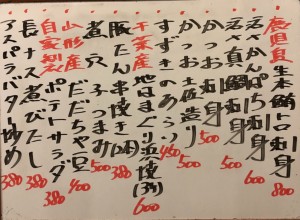 鹿児島産 生本鮪トロ刺身 800
活〆かんぱち刺身 600
活〆真鯛刺身 500
かつお刺身 500
かつお土佐造り 500
すずきのあらい 450
千葉産 地はまぐり浜焼(3ヶ) 600
豚たん串焼き(2本) 380
煮穴子つまみ 500
山形産 だだちゃ豆 400
自家製 ポテトサラダ 380
長ナス煮びたし 380
アスパラバター炒め 380